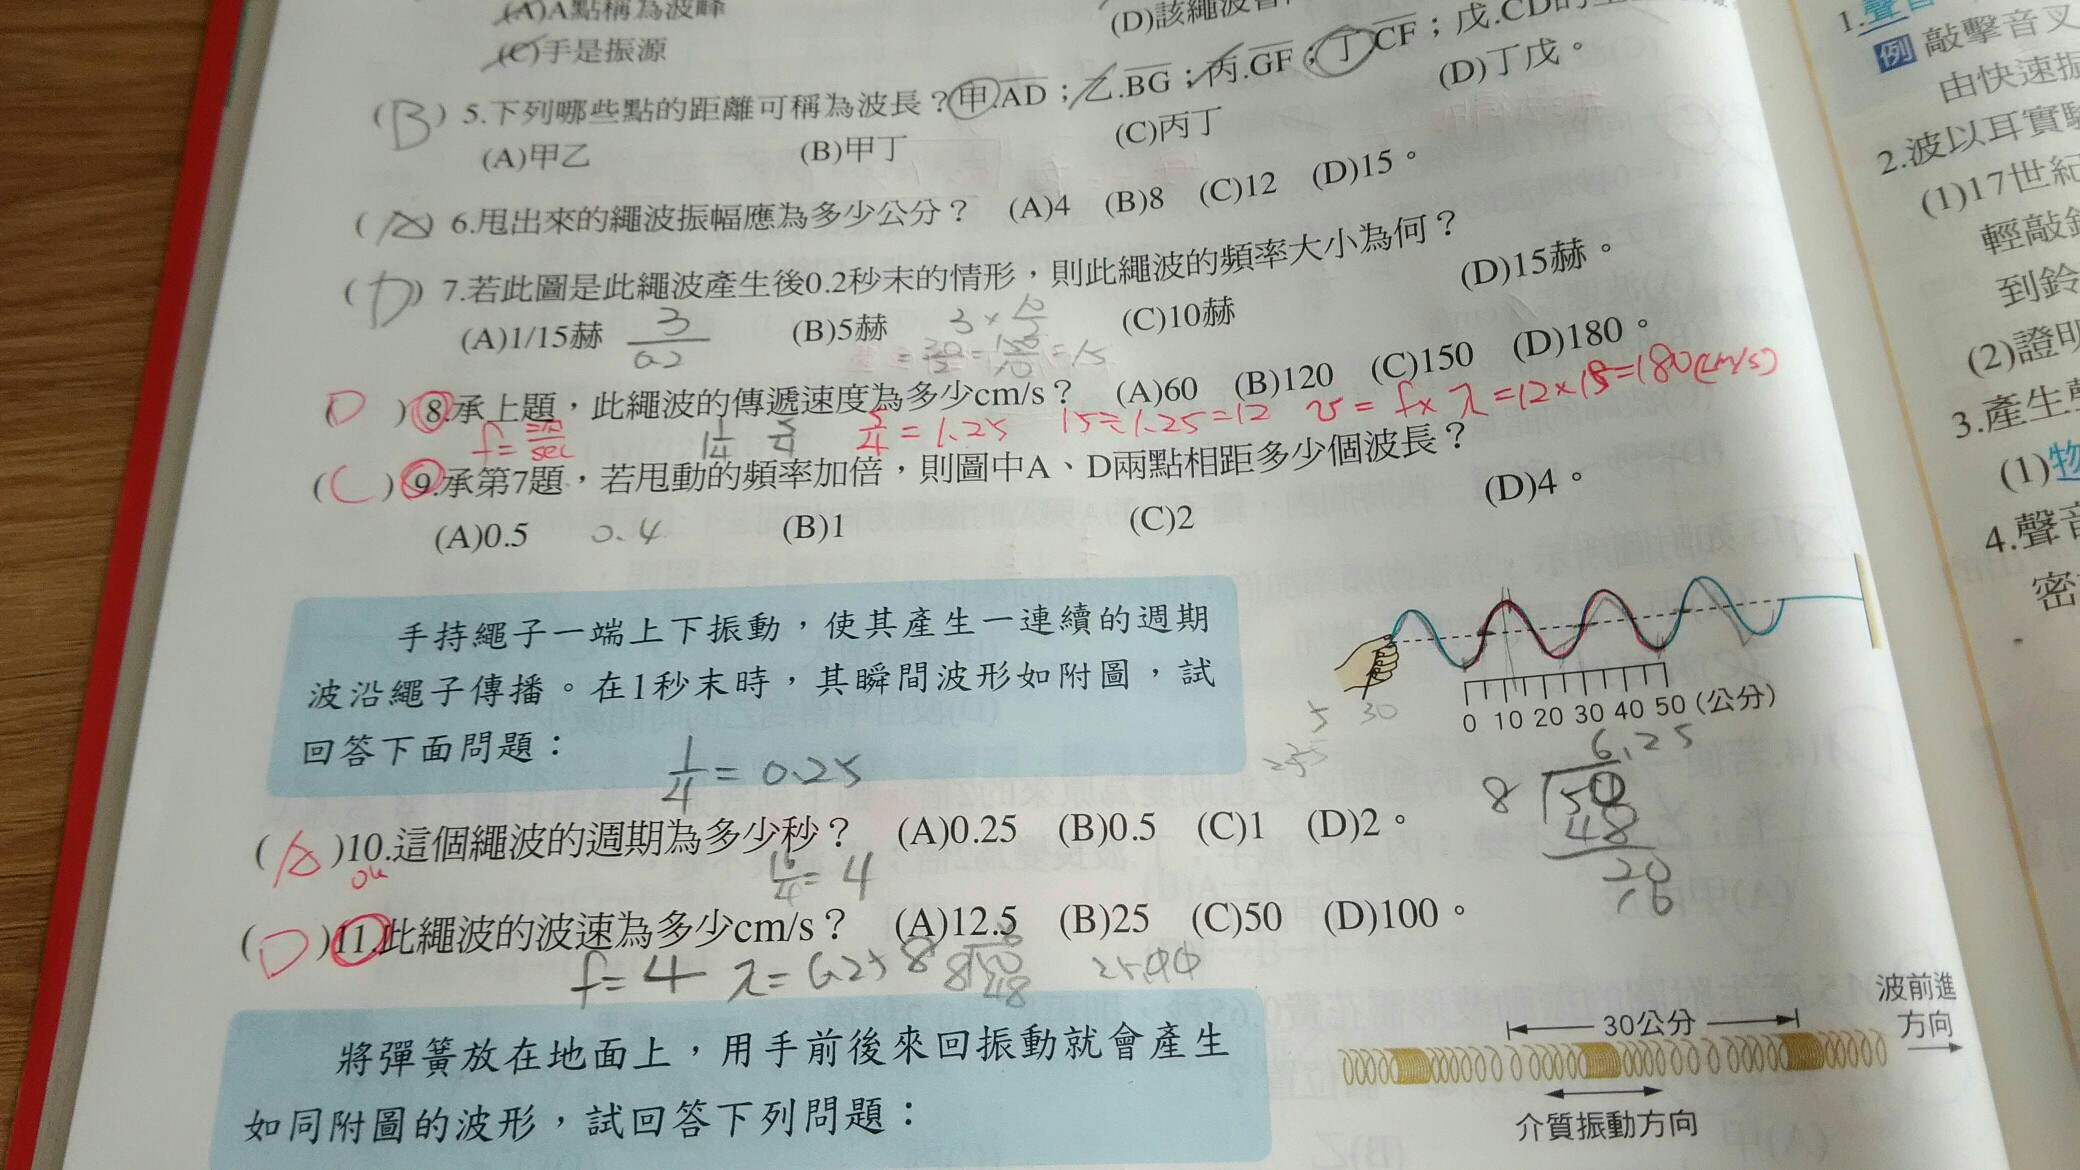 (A)A點稱為波峰
(C)手是振源
(D)該繩波會
(B) 5.下列哪些點的距離可稱為波長？甲.AD；乙.BG；丙.GF；丁.CF；戊.CD的
(A)甲乙 (B)甲丁 (C)丙丁 (D)丁戊。
(A) 6.甩出來的繩波振幅應為多少公分？ (A)4 (B)8 (C)12 (D)15。
(D) 7.若此圖是此繩波產生後0.2秒末的情形，則此繩波的頻率大小為何？
(A)1/15赫 (B)5赫 (C)10赫 (D)15赫。
3/0.2
3×10/2
=30/2=150/10=15
(D) 8.承上題，此繩波的傳遞速度為多少cm/s？ (A)60 (B)120 (C)150 (D)180。
1 1/4 5/4 5/4=1.25 15÷1.25=12 v=f×λ=12×15=180(cm/s)
(C) 9.承第7題，若甩動的頻率加倍，則圖中A、D兩點相距多少個波長？
(A)0.5 0.4 (B)1 (C)2 (D)4。
手持繩子一端上下振動，使其產生一連續的週期
波沿繩子傳播。在1秒末時，其瞬間波形如附圖，試
回答下面問題：
1/4=0.25
0 10 20 30 40 50 (公分)
5 30
6.25
8 50
48
20
16
(A)10.這個繩波的週期為多少秒？ (A)0.25 (B)0.5 (C)1 (D)2。
ok
16/4=4
(D)11.此繩波的波速為多少cm/s？ (A)12.5 (B)25 (C)50 (D)100。
f=4 λ=6.25
將彈簧放在地面上，用手前後來回振動就會產生
如同附圖的波形，試回答下列問題：
30公分
波前進
方向
介質振動方向
1.聲音
例 敲擊音叉
由快速振
2.波以耳實驗
(1)17世紀
輕敲
到鈴
(2)證明
3.產生
(1)物
4.聲音
密